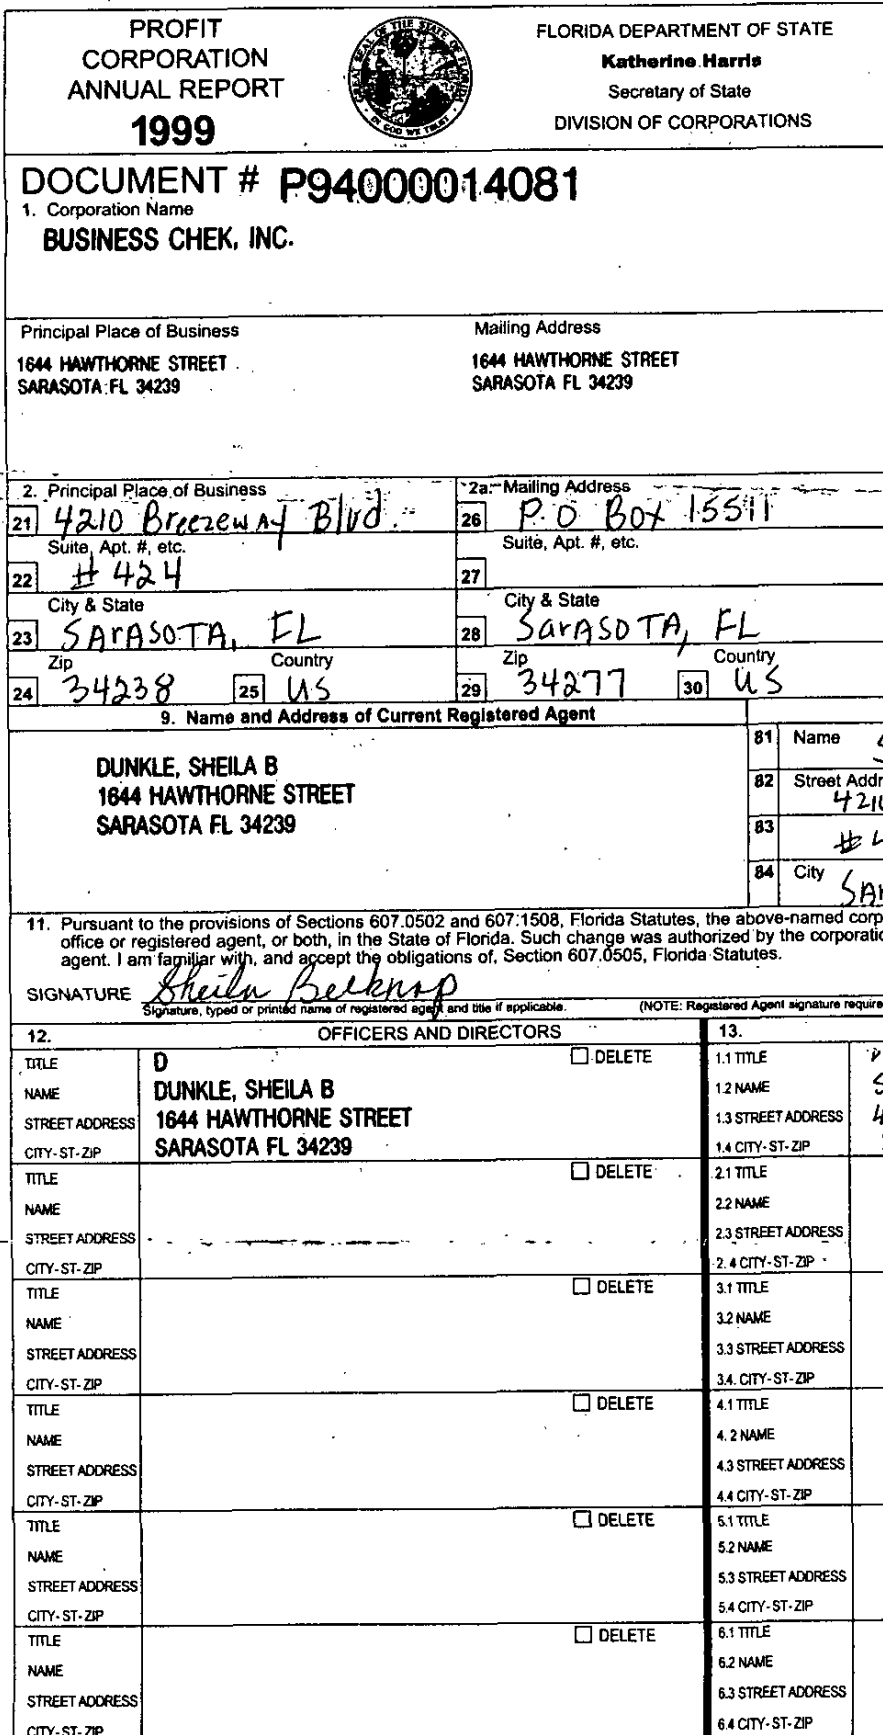 PROFIT
CORPORATION
ANNUAL REPORT
1999
GREAT SEAL OF THE STATE OF FLORIDA
IN GOD WE TRUST
FLORIDA DEPARTMENT OF STATE
Katherine Harris
Secretary of State
DIVISION OF CORPORATIONS
DOCUMENT # P94000014081
1. Corporation Name
BUSINESS CHEK, INC.
Principal Place of Business
1644 HAWTHORNE STREET
SARASOTA FL 34239
Mailing Address
1644 HAWTHORNE STREET
SARASOTA FL 34239
2. Principal Place of Business
21 4210 Breezeway Blvd.
Suite, Apt. #, etc.
22 # 424
City & State
23 SArASOTA, FL
Zip Country
24 34238 25 US
2a. Mailing Address
26 P.O Box 15511
Suite, Apt. #, etc.
27
City & State
28 SarASOTA, FL
Zip Country
29 34277 30 US
9. Name and Address of Current Registered Agent
DUNKLE, SHEILA B
1644 HAWTHORNE STREET
SARASOTA FL 34239
81 Name
82 Street Addr
4210
83
#
84 City SAr
11. Pursuant to the provisions of Sections 607.0502 and 607.1508, Florida Statutes, the above-named corp
office or registered agent, or both, in the State of Florida. Such change was authorized by the corporatio
agent. I am familiar with, and accept the obligations of, Section 607.0505, Florida Statutes.
SIGNATURE Sheila Belknap
Signature, typed or printed name of registered agent and title if applicable. (NOTE: Registered Agent signature require
12. OFFICERS AND DIRECTORS
TITLE D DELETE
NAME DUNKLE, SHEILA B
STREET ADDRESS 1644 HAWTHORNE STREET
CITY-ST-ZIP SARASOTA FL 34239
TITLE DELETE
NAME
STREET ADDRESS
CITY-ST-ZIP
TITLE DELETE
NAME
STREET ADDRESS
CITY-ST-ZIP
TITLE DELETE
NAME
STREET ADDRESS
CITY-ST-ZIP
TITLE DELETE
NAME
STREET ADDRESS
CITY-ST-ZIP
TITLE DELETE
NAME
STREET ADDRESS
CITY-ST-ZIP
13.
1.1 TITLE
1.2 NAME
1.3 STREET ADDRESS
1.4 CITY-ST-ZIP
2.1 TITLE
2.2 NAME
2.3 STREET ADDRESS
2.4 CITY-ST-ZIP
3.1 TITLE
3.2 NAME
3.3 STREET ADDRESS
3.4. CITY-ST-ZIP
4.1 TITLE
4.2 NAME
4.3 STREET ADDRESS
4.4 CITY-ST-ZIP
5.1 TITLE
5.2 NAME
5.3 STREET ADDRESS
5.4 CITY-ST-ZIP
6.1 TITLE
6.2 NAME
6.3 STREET ADDRESS
6.4 CITY-ST-ZIP